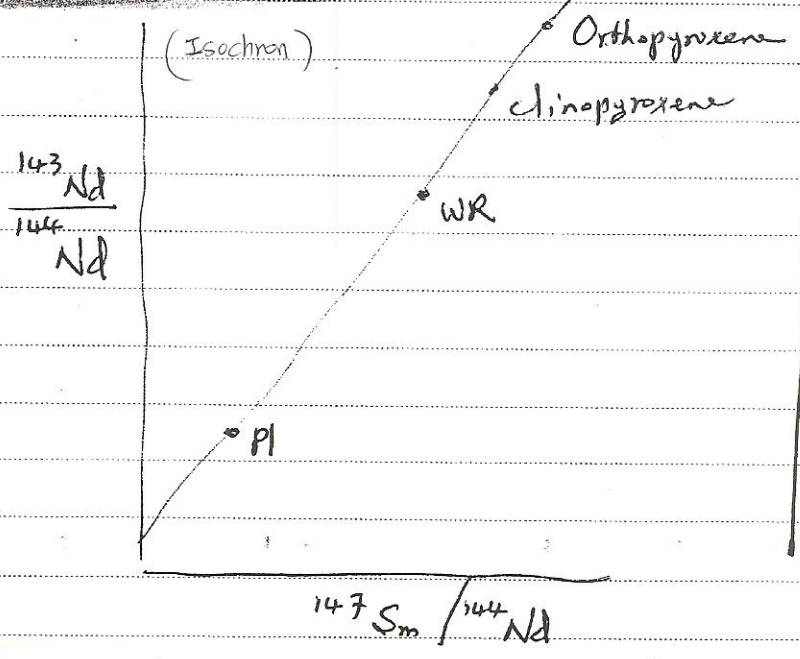 (Isochron)
Orthopyroxene
clinopyroxene
143Nd
144Nd
WR
Pl
147Sm/144Nd